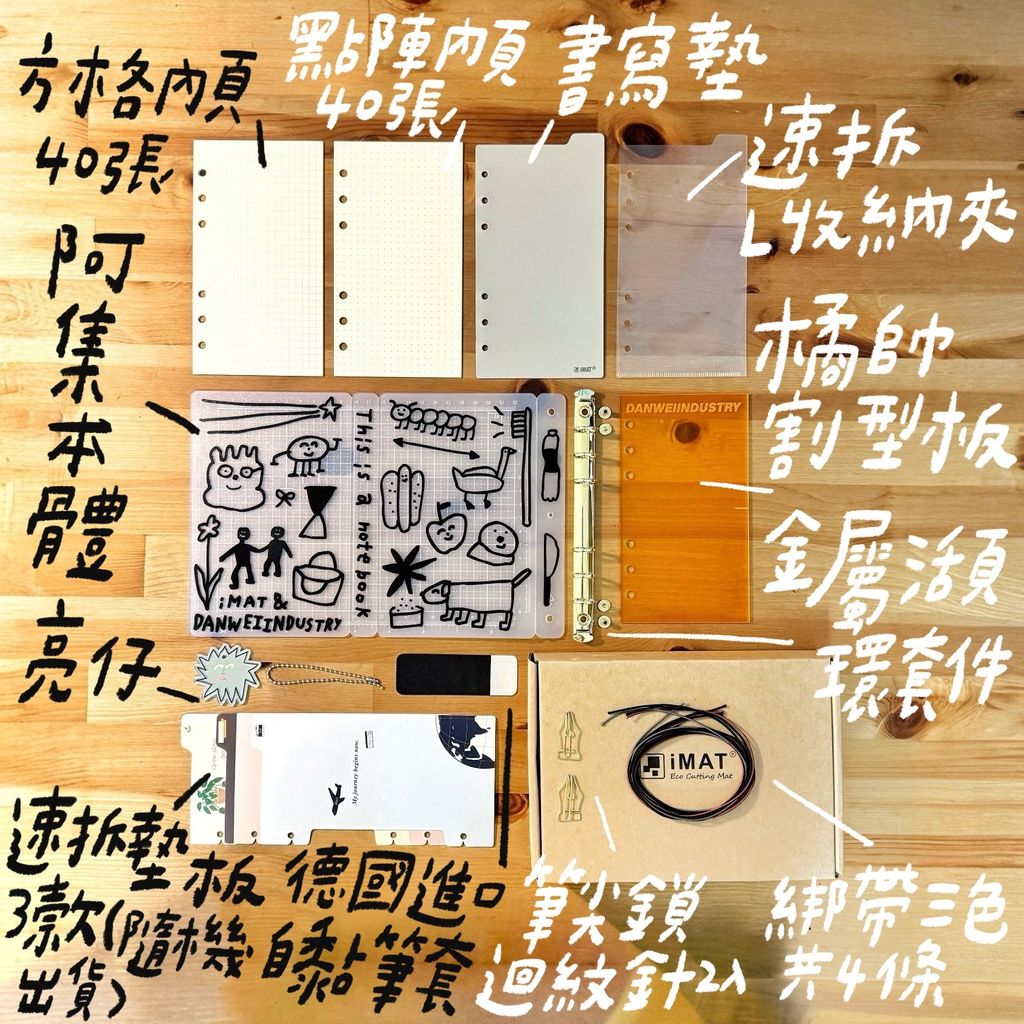 方格內頁
40張
點陣內頁
40張
書寫墊
速拆
L收納夾
阿集本體
橘帥
割型板
金屬活頁
環套件
亮仔
速拆墊板
3款(隨機
出貨)
德國進口
自黏筆套
筆尖鎖
迴紋針2入
綁帶三色
共4條
iMAT®
DANWEIINDUSTRY
This is a notebook
iMAT &
DANWEIINDUSTRY
My journey begins now.
iMAT®
Eco Cutting Mat